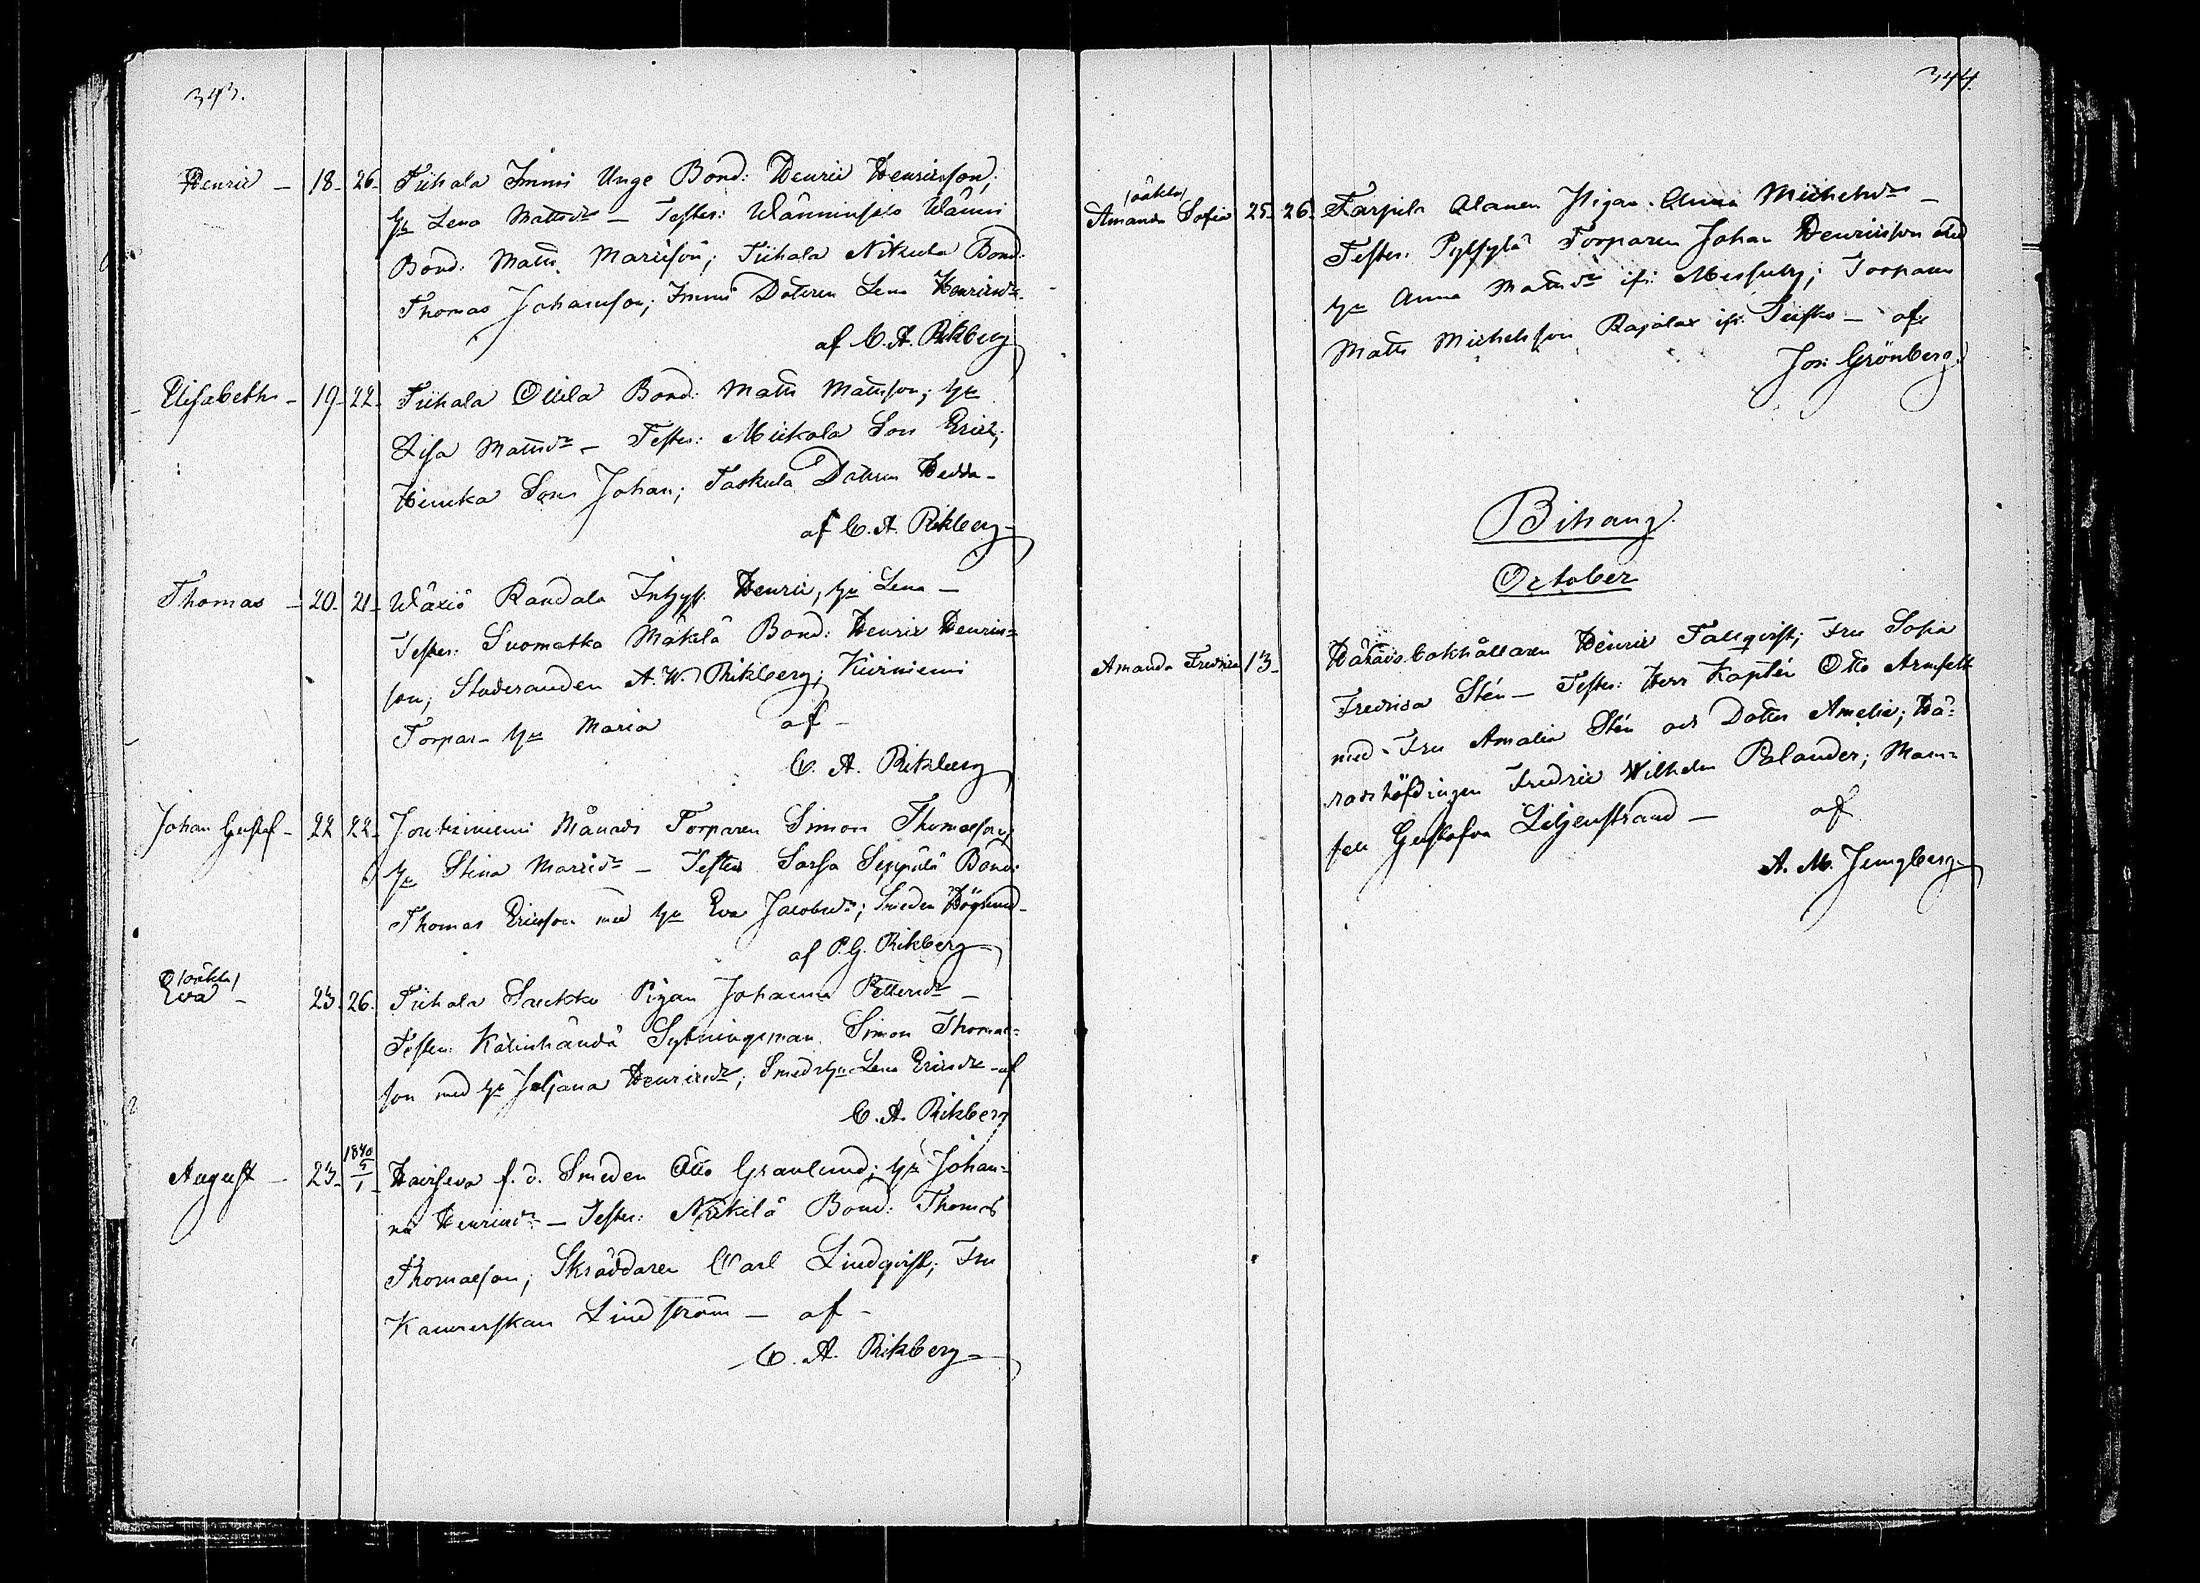 343.
Henric - 18. 26. Tiihala Immi Unge Bond: Henric Henricsson,
h:u Lena Mattsd:r - Testes: Wänninsalo Wänni
Bond: Matts Marcison; Tiihala Nikula Bond:
Thomas Johansson; Immi Dotteren Lena Henricsd:r
af C. A. Rikberg
Elisabeth - 19. 22. Tiihala Ollila Bond: Matts Mattsson; h:u
Lisa Mattsd:r - Testes: Mickola Son Eric;
Sonen Johan; Taskula Dottren Hedda -
af C. A. Rikberg
Thomas - 20. 21. Wäxiö Randala Inhys. Henric, h:u Lena -
Testes: Suomatka Mäkilä Bond: Henric Henrics=
son; Studeranden A. W. Rikberg; Kiiriniemi
Torpar- h:u Maria af -
C. A. Rikberg
Johan Gustaf - 22 22. Joutziniemi Månads Torparen Simon Thomasson;
h:u Stina Marcid:r - Testes Sarsa Seppälä Bond:
Thomas Ericsson med h:u Eva Jacobsd:r; Smeden Höglund -
af P. G. Rikberg
(oäkta)
Eva - 23. 26. Tiihala Saukko Pigan Johanna Pettersd:r -
Testes: Sytningsman Simon Thomas=
son med h:u Juljana Henricsd:r; Smeds h:u Lena Ericsd:r - af
C. A. Rikberg
August - 23. 1840 5/1 f. d. Smeden Otto Granlund; h:u Johan=
na Henricsd:r - Testes: Bond: Thomas
Thomasson; Skräddaren Carl Lindqvist; Fru
Kamrerskan Lindström - af -
C. A. Rikberg -
344.
(oäkta)
Amanda Sofia 25. 26. Tarpila Alanen Pigan Anna Michelsd:r -
Testes: Torparen Johan Henricsson med
h:u Anna Mattsd:r ifr: Messuby; Torparen
Matts Michelsson Rajalax ifr: - af
Jos: Grönberg.
Bihang.
October
Amanda Fredrica 13. Häradsbokhållaren Henric Fallqvist; Fru Sofia
Fredrica Stén - Testes: Herr Kapten Otto Armfelt
med Fru Amalia Stén och Dotter Amelie; Hä=
radshöfdingen Fredric Wilhelm Palander; Mam=
sell Gustafva Liljenstrand - af
A. M. Jungberg